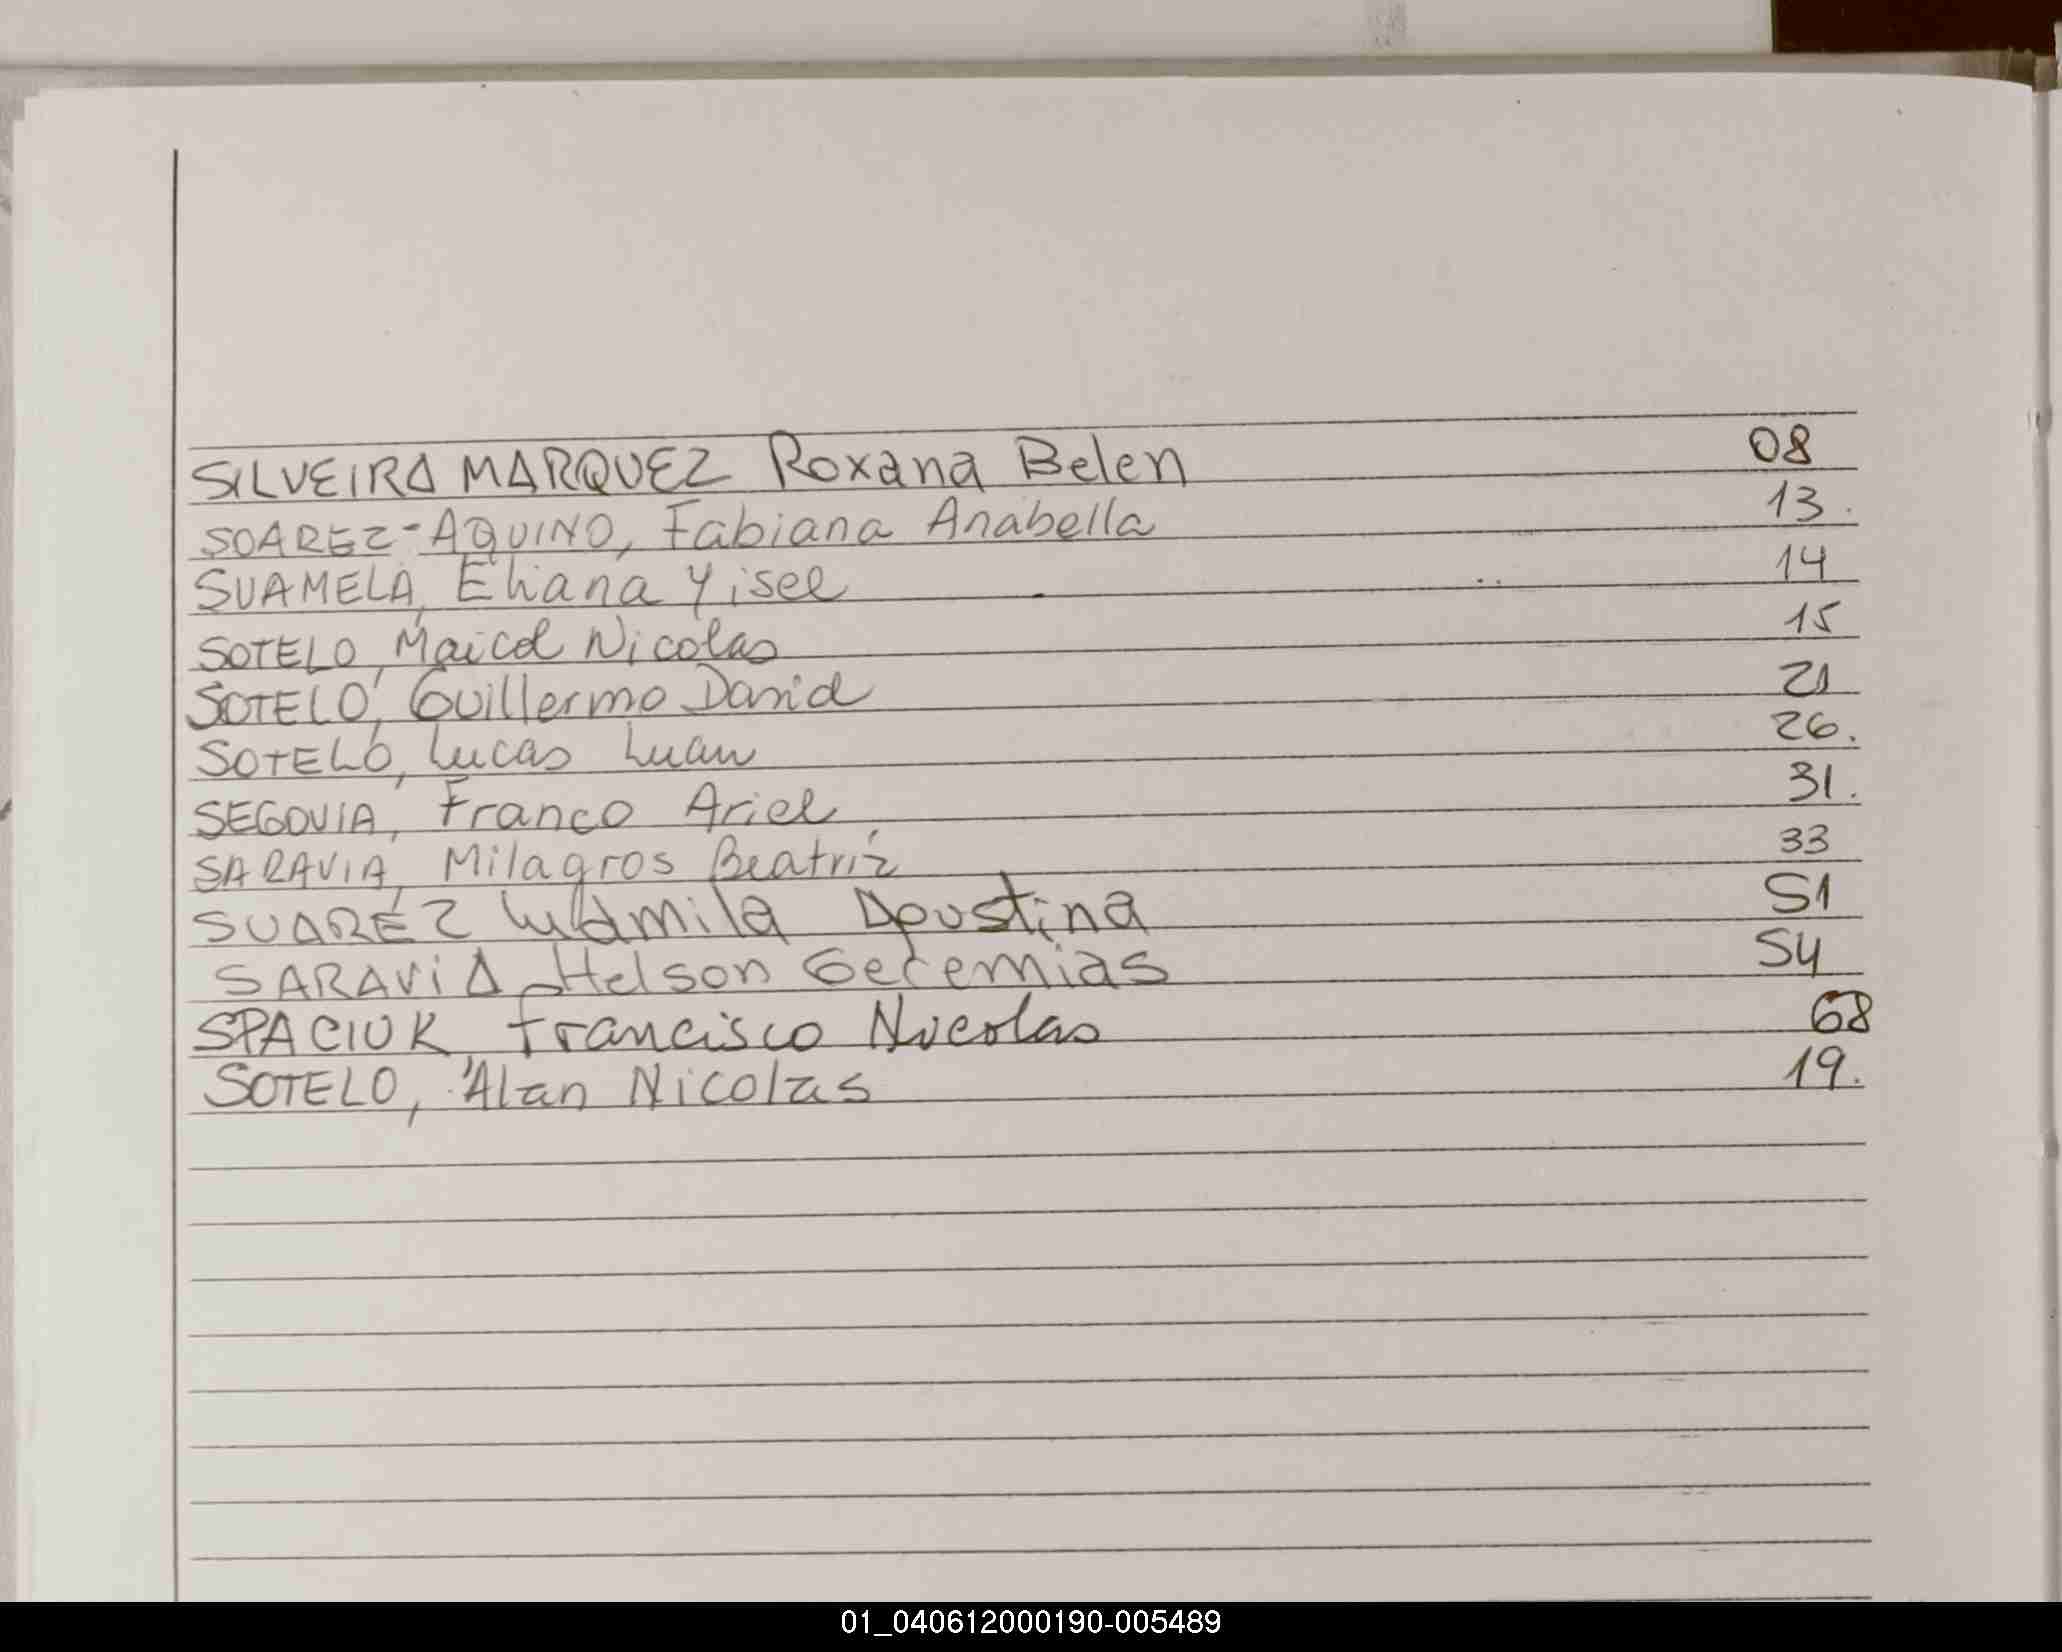 SILVEIRA MARQUEZ Roxana Belen 08
SOAREZ-AQUINO, Fabiana Anabella 13.
SUAMELA, Eliana Yisel 14
SOTELO, Maicol Nicolas 15
SOTELO, Guillermo David 21
SOTELO, Lucas Luan 26.
SEGOVIA, Franco Ariel 31.
SARAVIA, Milagros Beatríz 33
SUAREZ Ludmila Agustina 51
SARAVIA Helson Geremias 54
SPACIUK Francisco Nicolas 68
SOTELO, Alan Nicolas 19.
01_040612000190-005489